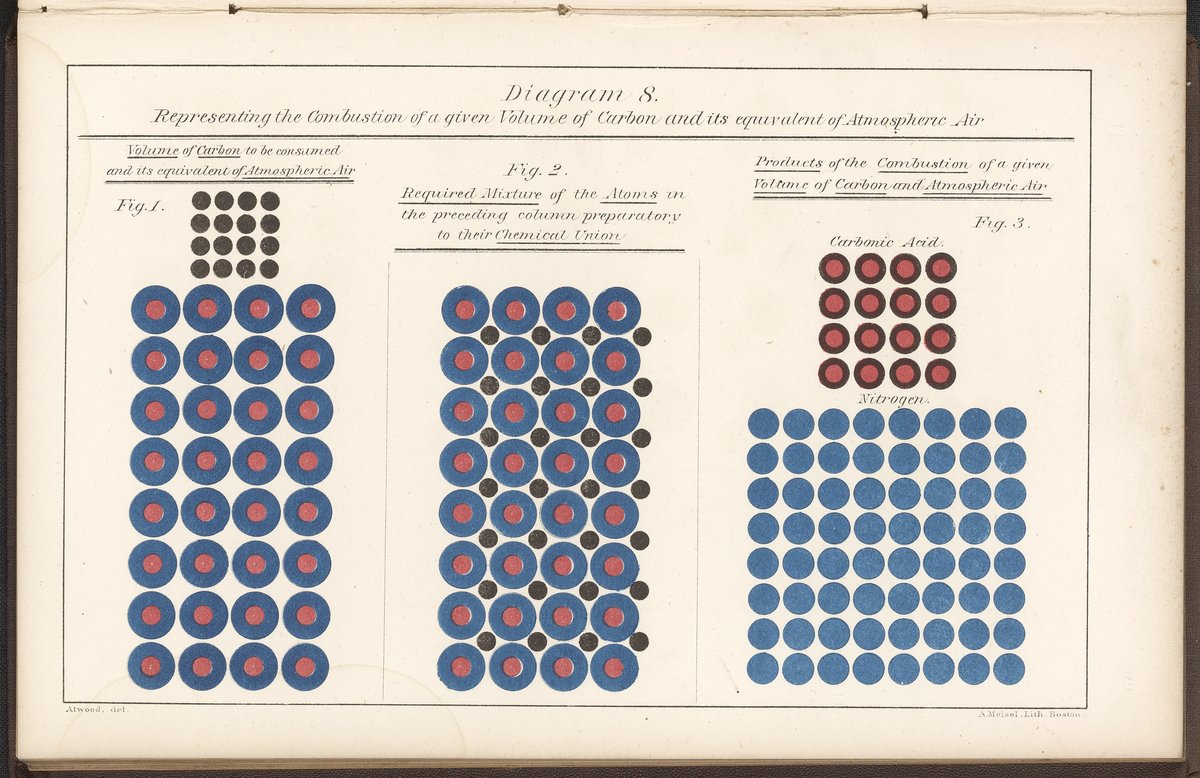 Diagram 8.
Representing the Combustion of a given Volume of Carbon and its equivalent of Atmospheric Air
Volume of Carbon to be consumed
and its equivalent of Atmospheric Air
Fig. 1.
Fig. 2.
Required Mixture of the Atoms in
the preceding column preparatory
to their Chemical Union
Products of the Combustion of a given
Volume of Carbon and Atmospheric Air
Fig. 3.
Carbonic Acid.
Nitrogen.
Atwood, del.
A. Meisel, Lith. Boston.